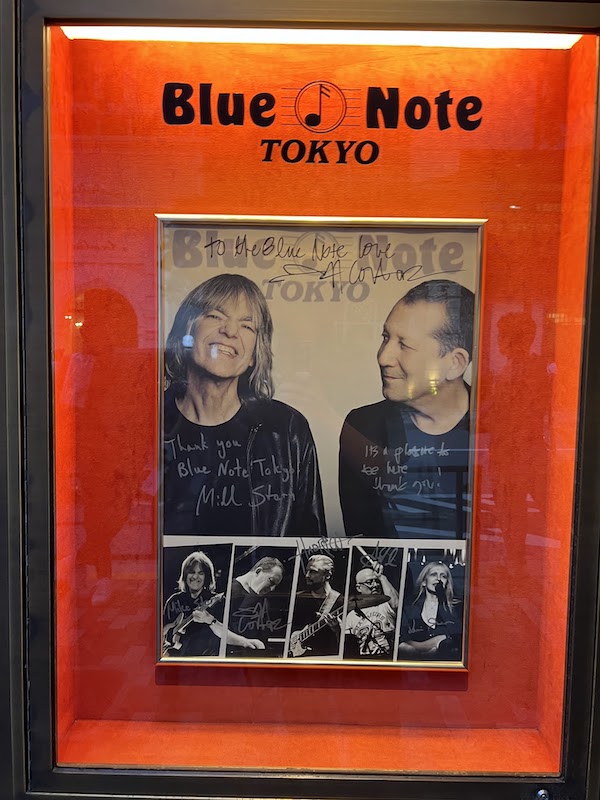 Blue Note
TOKYO
Blue Note
TOKYO
To the Blue Note love
Thank you
Blue Note Tokyo
It's a pleasure to
be here !
thank you!
Mike